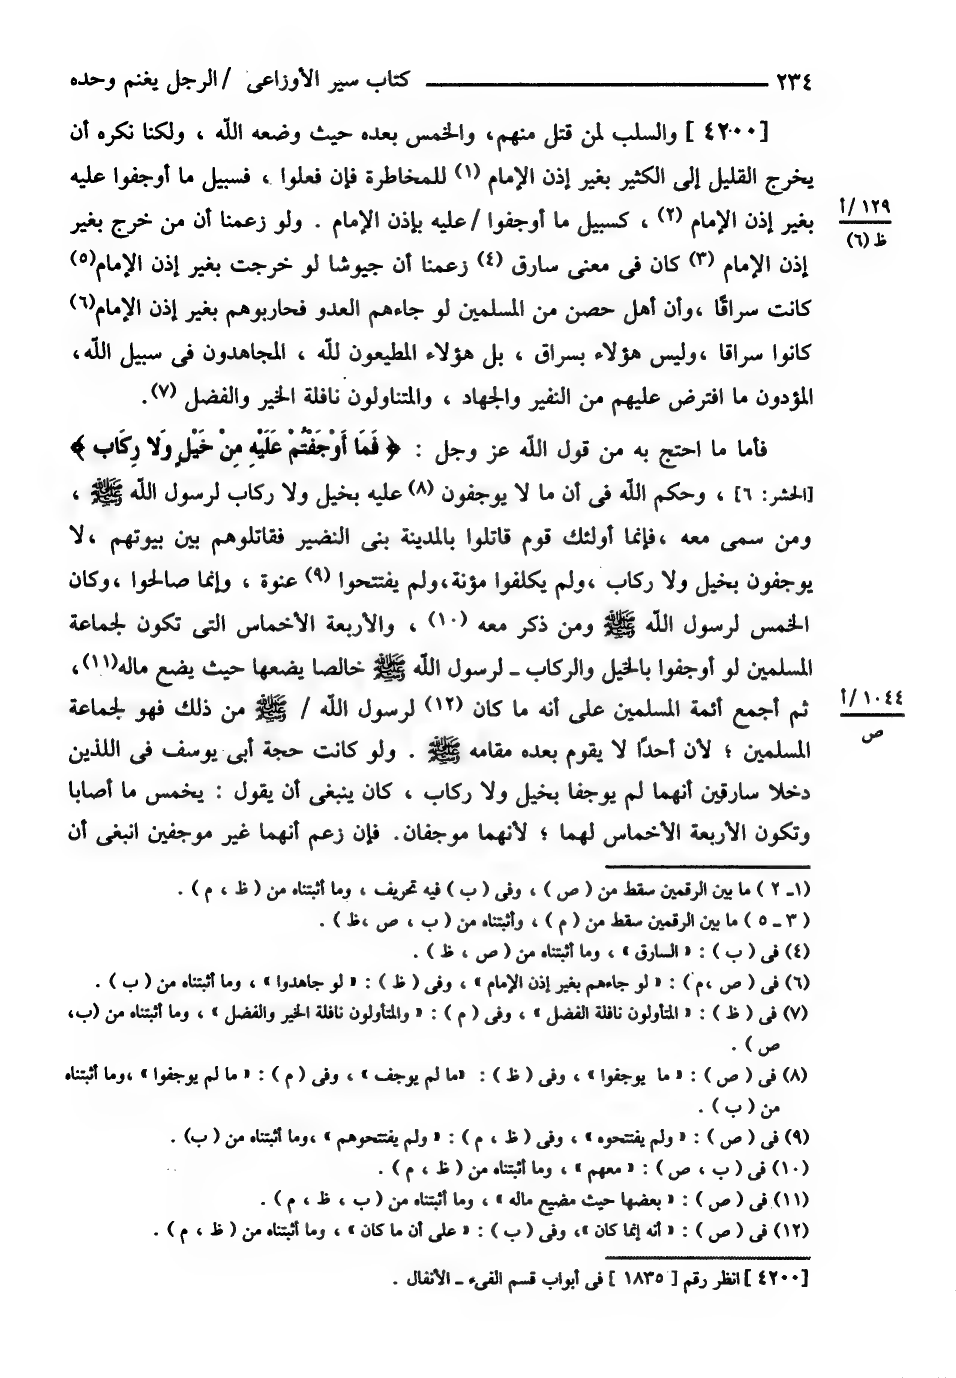 ٢٣٤ ـــــــــــــــــــــــــــــ كتاب سير الأوزاعى / الرجل يغنم وحده
[٤٢٠٠] والسلب لمن قتل منهم، والخمس بعده حيث وضعه الله ، ولكنا نكره أن
يخرج القليل إلى الكثير بغير إذن الإمام (١) للمخاطرة فإن فعلوا ، فسبيل ما أوجفوا عليه
بغير إذن الإمام (٢) ، كسبيل ما أوجفوا /عليه بإذن الإمام . ولو زعمنا أن من خرج بغير
١٢٩/ أ
ظ (٦)
إذن الإمام (٣) كان فى معنى سارق (٤) زعمنا أن جيوشا لو خرجت بغير إذن الإمام(٥)
كانت سراقًا ،وأن أهل حصن من المسلمين لو جاءهم العدو فحاربوهم بغير إذن الإمام(٦)
كانوا سراقا ،وليس هؤلاء بسراق ، بل هؤلاء المطيعون لله ، المجاهدون فى سبيل الله،
المؤدون ما افترض عليهم من النفير والجهاد ، والمتناولون نافلة الخير والفضل (٧).
فأما ما احتج به من قول الله عز وجل : ﴿ فَمَا أَوْجَفْتُمْ عَلَيْهِ مِنْ خَيْلٍ وَلا رِكَاب ﴾
[الحشر: ٦] ، وحكم الله فى أن ما لا يوجفون (٨) عليه بخيل ولا ركاب لرسول الله ﷺ ،
ومن سمى معه ،فإنما أولئك قوم قاتلوا بالمدينة بنى النضير فقاتلوهم بين بيوتهم ،لا
يوجفون بخيل ولا ركاب ،ولم يكلفوا مؤنة،ولم يفتتحوا (٩) عنوة ، وإنما صالحوا ،وكان
الخمس لرسول الله ﷺ ومن ذكر معه (١٠) ، والأربعة الأخماس التى تكون لجماعة
المسلمين لو أوجفوا بالخيل والركاب ـ لرسول الله ﷺ خالصا يضعها حيث يضع ماله(١١)،
ثم أجمع أئمة المسلمين على أنه ما كان (١٢) لرسول الله / ﷺ من ذلك فهو لجماعة
١٠٤٤/ أ
ص
المسلمين ؛ لأن أحدًا لا يقوم بعده مقامه ﷺ . ولو كانت حجة أبى يوسف فى اللذين
دخلا سارقين أنهما لم يوجفا بخيل ولا ركاب ، كان ينبغى أن يقول : يخمس ما أصابا
وتكون الأربعة الأخماس لهما ؛ لأنهما موجفان. فإن زعم أنهما غير موجفين انبغى أن
(١ـ ٢ ) ما بين الرقمين سقط من ( ص ) ، وفى ( ب ) فيه تحريف ، وما أثبتناه من ( ظ ، م ) .
( ٣ ـ ٥ ) ما بين الرقمين سقط من ( م ) ، وأثبتناه من ( ب ، ص ،ظ ) .
(٤) فى ( ب ) : « السارق » ، وما أثبتناه من ( ص ، ظ ) .
(٦) فى ( ص ،م ) : « لو جاءهم بغير إذن الإمام » ، وفى ( ظ ) : « لو جاهدوا » ، وما أثبتناه من ( ب ) .
(٧) فى ( ظ ) : « المتأولون نافلة الفضل » ، وفى ( م ) : « والمتأولون نافلة الخير والفضل » ، وما أثبتناه من (ب،
ص ) .
(٨) فى ( ص ) : « ما يوجفوا » ، وفى ( ظ ) : «ما لم يوجف » ، وفى ( م ) : « ما لم يوجفوا » ،وما أثبتناه
من ( ب ) .
(٩) فى ( ص ) : « ولم يفتتحوه » ، وفى ( ظ ، م ) : « ولم يفتتحوهم » ،وما أثبتناه من ( ب) .
(١٠) فى ( ب ، ص ) : « معهم » ، وما أثبتناه من ( ظ ، م ) .
(١١) فى ( ص ) : « بعضها حيث مضيع ماله » ، وما أثبتناه من ( ب ، ظ ، م ) .
(١٢) فى ( ص ) : « أنه إنما كان »، وفى ( ب ) : « على أن ما كان » ، وما أثبتناه من ( ظ ، م ) .
[٤٢٠٠] انظر رقم [ ١٨٣٥ ] فى أبواب قسم الفىء ـ الأنفال .